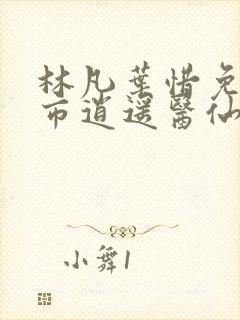 林凡葉惜免
市逍遥醫仙
小舞1